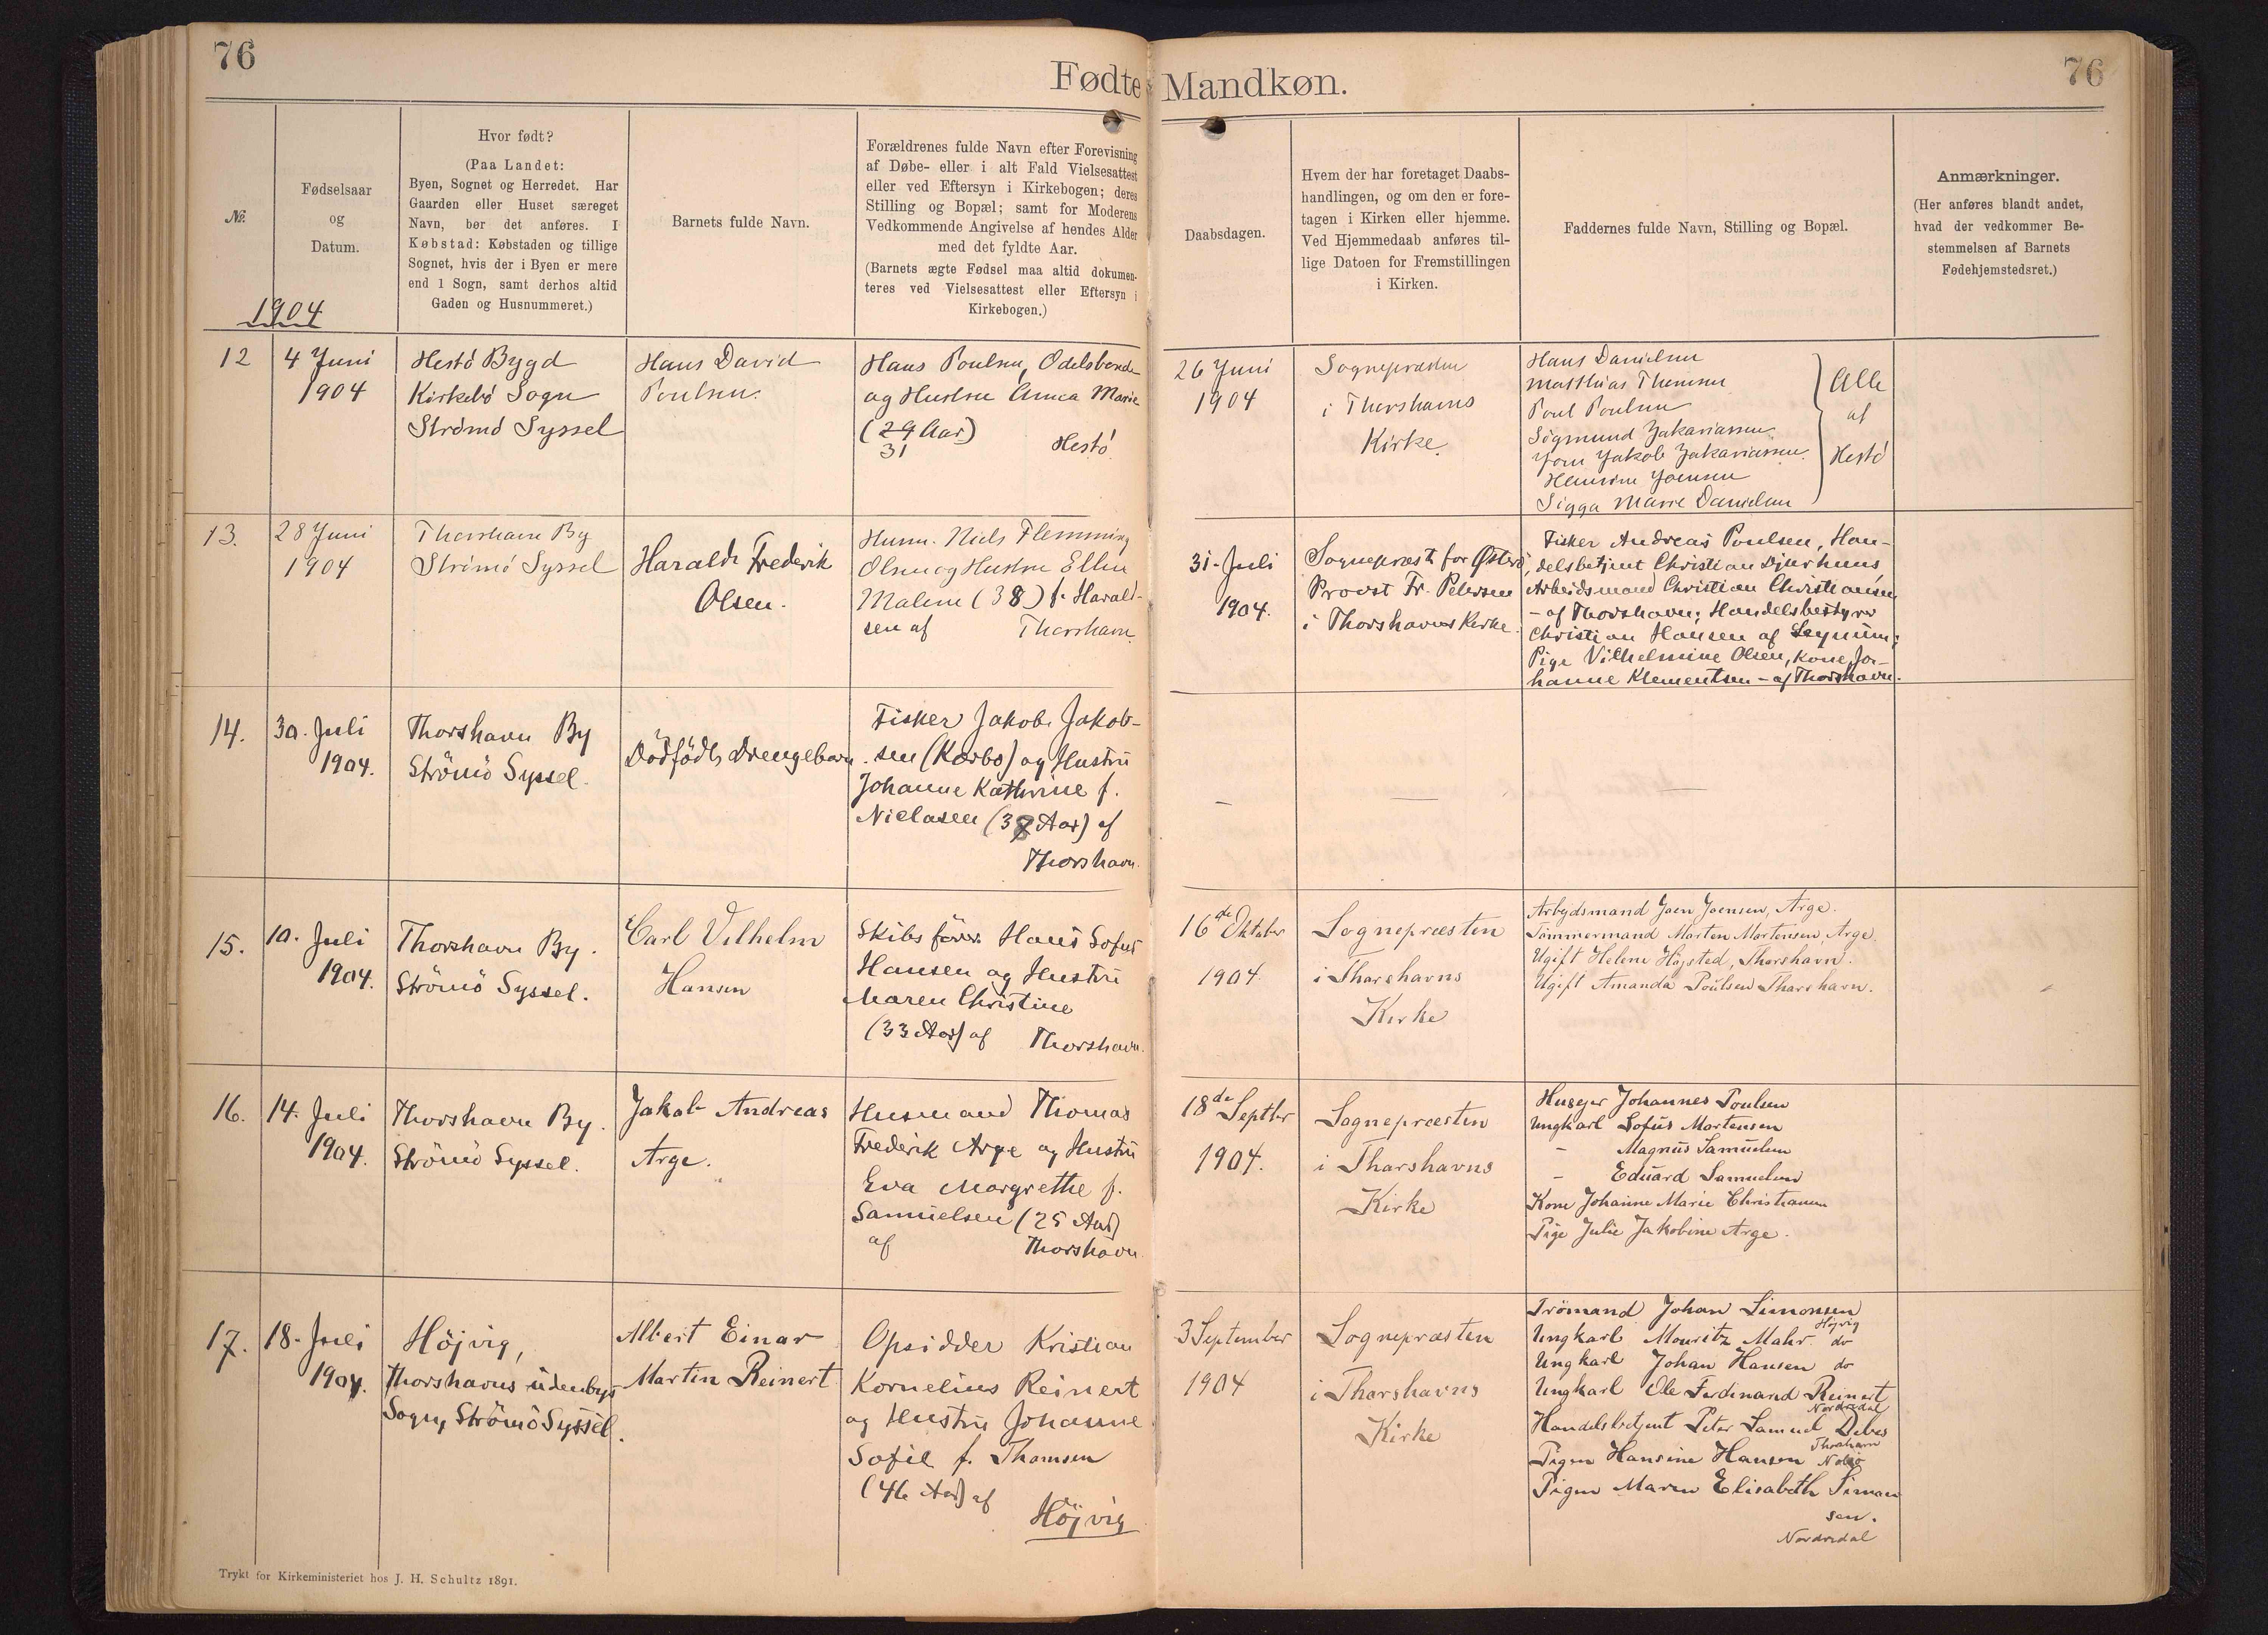 76
Fødte Mandkøn.
76
№.
Fødselsaar
og
Datum.
Hvor født?
(Paa Landet:
Byen, Sognet og Herredet. Har
Gaarden eller Huset særeget
Navn, bør det anføres. I
Købstad: Købstaden og tillige
Sognet, hvis der i Byen er mere
end 1 Sogn, samt derhos altid
Gaden og Husnummeret.)
Barnets fulde Navn.
Forældrenes fulde Navn efter Forevisning
af Døbe- eller i alt Fald Vielsesattest
eller ved Eftersyn i Kirkebogen; deres
Stilling og Bopæl; samt for Moderens
Vedkommende Angivelse af hendes Alder
med det fyldte Aar.
(Barnets ægte Fødsel maa altid dokumen-
teres ved Vielsesattest eller Eftersyn i
Kirkebogen.)
Daabsdagen.
Hvem der har foretaget Daabs-
handlingen, og om den er fore-
tagen i Kirken eller hjemme.
Ved Hjemmedaab anføres til-
lige Datoen for Fremstillingen
i Kirken.
Faddernes fulde Navn, Stilling og Bopæl.
Anmærkninger.
(Her anføres blandt andet,
hvad der vedkommer Be-
stemmelsen af Barnets
Fødehjemstedsret.)
1904
12
4 Juni
1904
Hestö Bygd
Kirkebö Sogn
Strömö Syssel
Hans David
Poulsen.
Hans Poulsen, Odelsbonde
og Hustru Anna Marie
(29 Aar)
31
Hestö
26 Juni
1904
Sognepræsten
i Thorshavns
Kirke.
Hans Danielsen
Matthias Thomsen
Poul Poulsen
Sigmund Zakariassen
Joen Jakob Zakariassen
Hansine Joensen
Sigga Marie Danielsen
Alle
af
Hestö
13.
28 Juni
1904
Thorshavn By
Strömö Syssel
Harald Frederik
Olsen.
Husm. Niels Flemming
Olsen og Hustru Ellen
Malene (38) f. Harald-
sen af
Thorshavn
31-Juli
1904.
Sognepræst for Østerö,
Provst Fr. Petersen
i Thorshavns Kirke.
Fisker Andreas Poulsen, Han-
delsbetjent Christian Djurhuus
Arbeidsmand Christian Christiansen
- af Thorshavn; Handelsbestyrer
Christian Hansen af Leynum;
Pige Vilhelmine Olsen, Kone Jo-
hanne Klementsen - af Thorshavn.
14.
30. Juli
1904.
Thorshavn By
Strömö Syssel.
Dödfödt Drengebarn.
Fisker Jakob Jakob-
sen (Kærbo) og Hustru
Johanne Kathrine f.
Niclasen (38 Aar) af
Thorshavn.
-
-
-
15.
10. Juli
1904.
Thorshavn By.
Strömö Syssel.
Carl Vilhelm
Hansen
Skibsfører Hans Sofus
Hansen og Hustru
Maren Christine
(33 Aar) af
Thorshavn.
16de Oktober
1904
Sognepræsten
i Thorshavns
Kirke
Arbejdsmand Joen Joensen, Arge.
Tømmermand Morten Mortensen, Arge.
Ugift Helene Højsted, Thorshavn.
Ugift Amanda Poulsen Thorshavn.
16.
14. Juli
1904.
Thorshavn By.
Strömö Syssel.
Jakob Andreas
Arge.
Husmand Thomas
Frederik Arge og Hustru
Eva Margrethe f.
Samuelsen (25 Aar)
af
Thorshavn
18de Septbr
1904.
Sognepræsten
i Thorshavns
Kirke
Husejer Johannes Poulsen
Ungkarl Sofus Mortensen
- Magnus Samuelsen
- Eduard Samuelsen
Kone Johanne Marie Christiansen
Pige Julie Jakobine Arge.
17.
18. Juli
1904.
Höjvig,
Thorshavns udenbys
Sogn, Strömö Syssel.
Albert Einar
Martin Reinert
Opsidder Kristian
Kornelius Reinert
og Hustru Johanne
Sofie f. Thomsen
(46 Aar) af
Höjvig
3 September
1904
Sognepræsten
i Thorshavns
Kirke
Trömand Johan Simonsen
Højvig
Ungkarl Mouritz Mohr do
Ungkarl Johan Hansen do
Ungkarl Ole Ferdinand Reinert
Nordredal
Handelsbetjent Peter Samuel Debes
Thorshavn
Pigen Hansine Hansen Nolsö
Pigen Maren Elisabeth Simon
sen.
Nordredal
Trykt for Kirkeministeriet hos J. H. Schultz 1891.